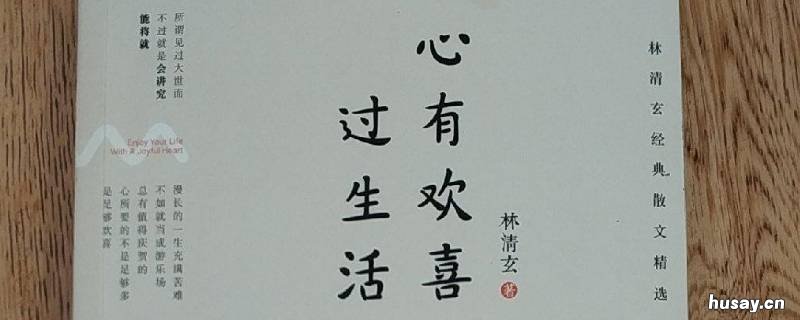 林清玄经典散文精选
心有欢喜
过生活
林清玄 著
所谓见过大世面
不过就是会讲究
能将就
Enjoy Your Life
With A Joyful Heart
漫长的一生充满苦难
不如就当成游乐场
总有值得庆贺的
心所要的不是足够多
是足够欢喜
husay.cn